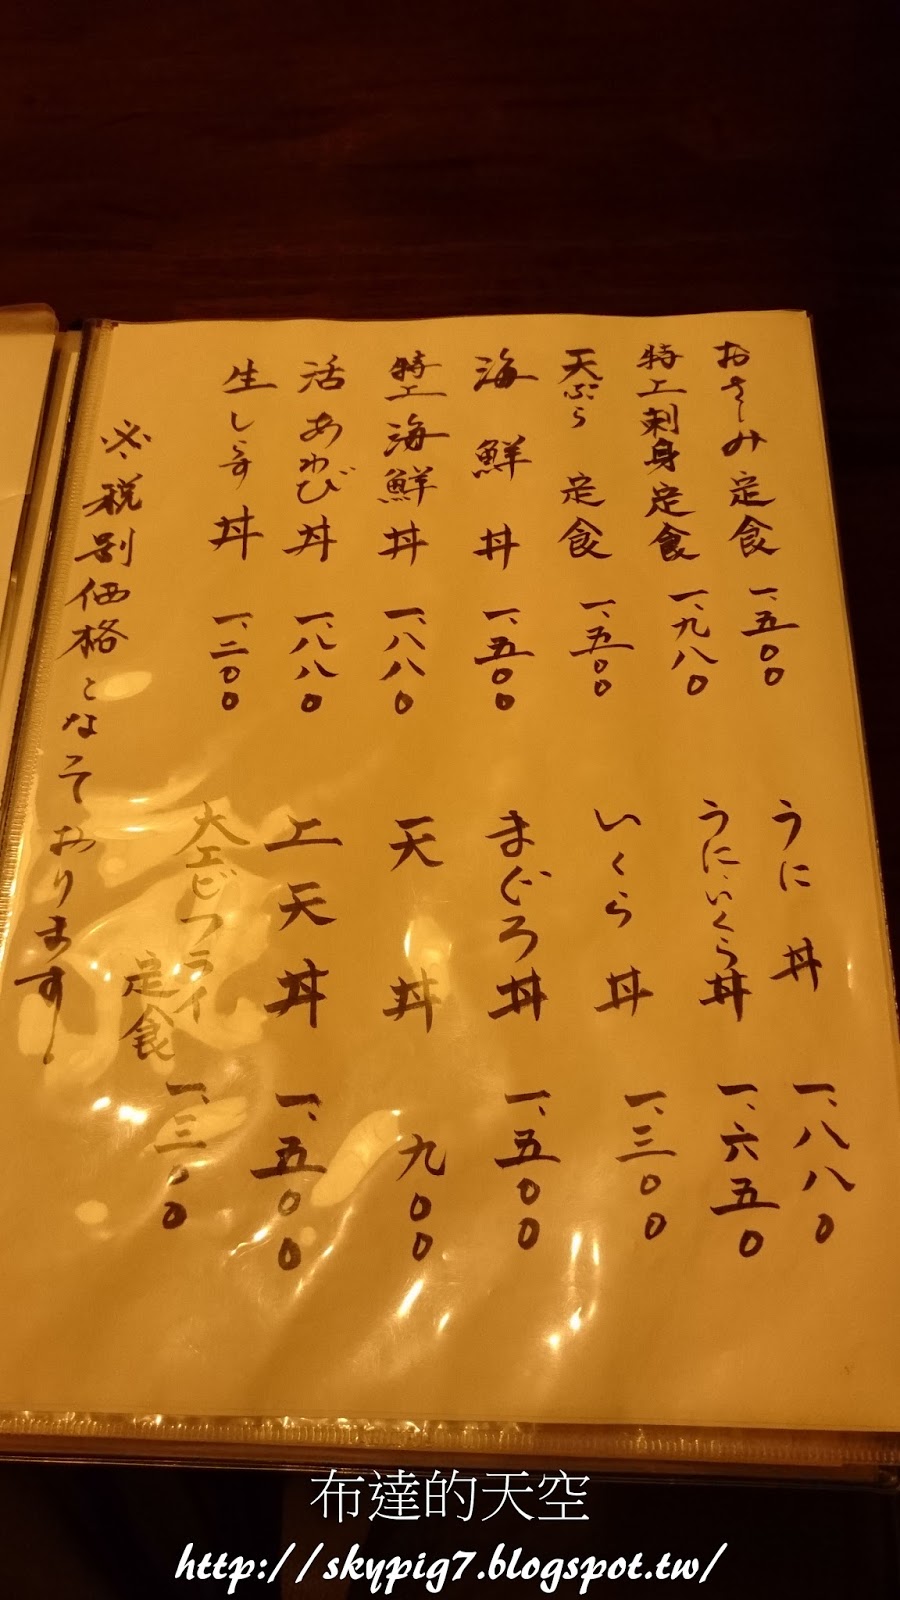 おさしみ定食 一、五〇〇
特上刺身定食 一、九八〇
天ぷら 定食 一、五〇〇
海鮮丼 一、五〇〇
特上海鮮丼 一、八八〇
活あわび丼 一、八八〇
生しらす丼 一、二〇〇
うに丼 一、八八〇
うに、いくら丼 一、六五〇
いくら丼 一、三〇〇
まぐろ丼 一、五〇〇
天丼 九〇〇
上天丼 一、五〇〇
大エビフライ定食 一、三〇〇
※税別価格となております。
布達的天空
http://skypig7.blogspot.tw/